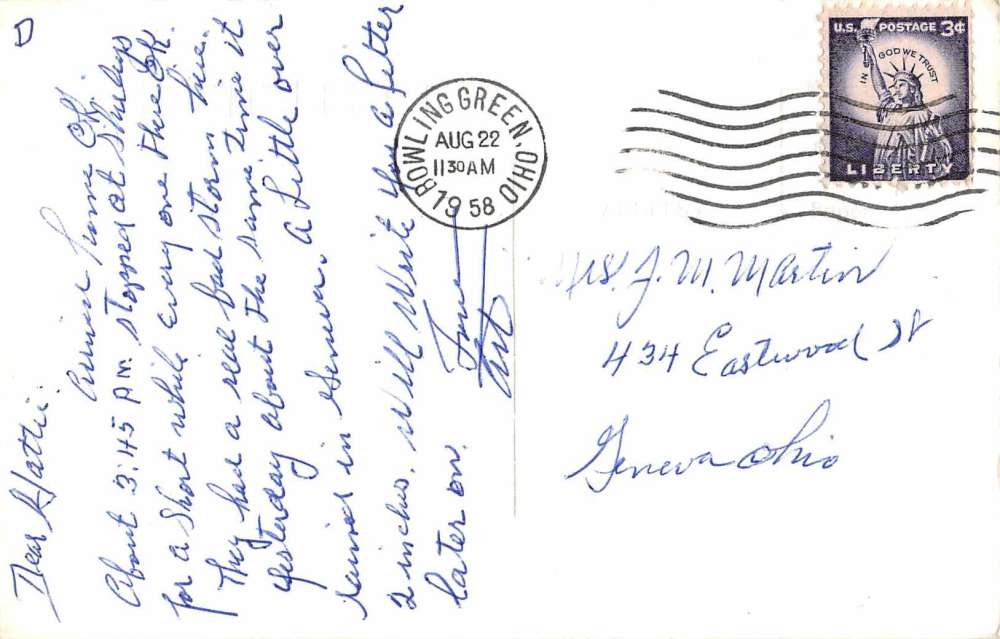 Dear Hattie.
Arrived home Ok.
About 3:45 P.M. stopped at Shirleys
for a short while every one there Ok.
They had a real bad storm here.
yesterday about the same time it
rained in Geneva. a little over
2 inches. Will write you a letter
later on.
Love
Art
BOWLING GREEN, OHIO
AUG 22
11 30 AM
1958
U.S. POSTAGE 3¢
IN GOD WE TRUST
LIBERTY
Mrs. J. M. Martin
434 Eastwood St
Geneva Ohio